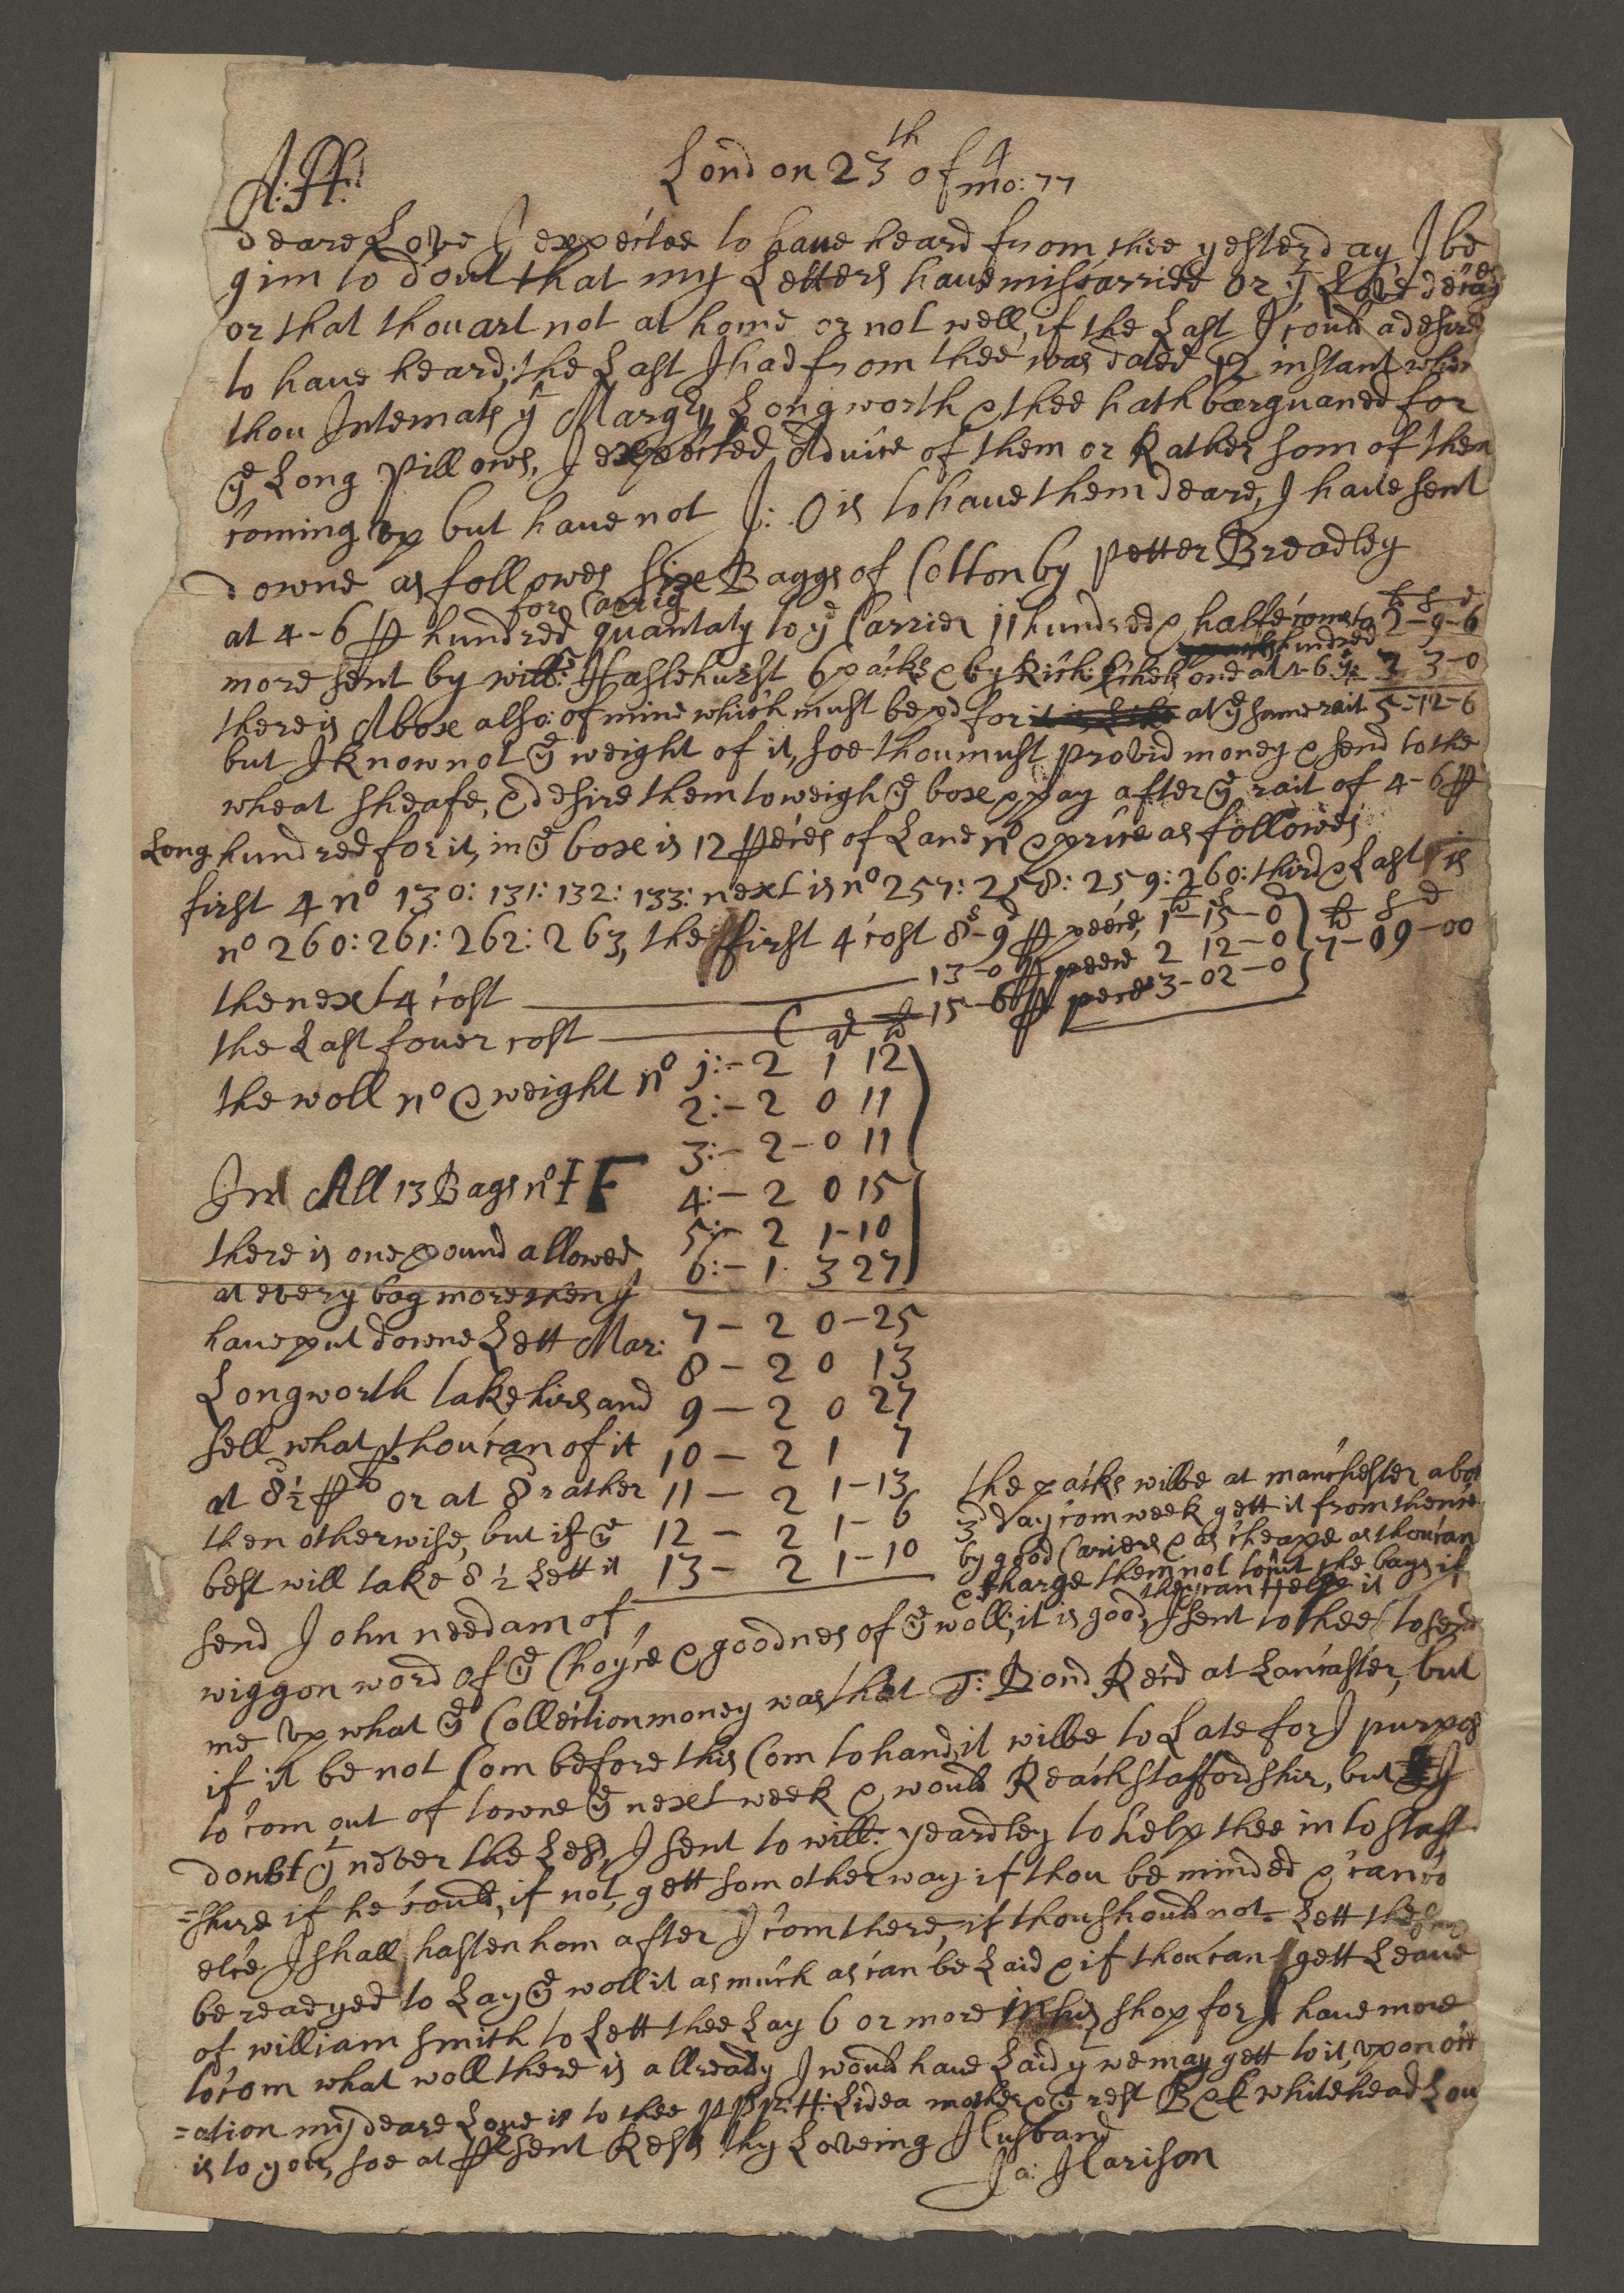 A:H:
London 23th of 4 mo: 77
deare Love I expected to haue heard from thee yesterday I be
gin to dout that my Letters haue miscarried or yr Love decays
or that thou art not at home or not well, if the Last I could a desired
to haue heard; the Last I had from thee was dated 12 instant wher
thou Intemats yt Margry Longworth & thee hath barguaned for
ye Long Pillows, I expected Aduice of them or Rather som of them
coming vp but haue not J: O is to haue them deare, I haue sent
downe as followes six Baggs of Cotton by Petter Breadley
at 4-6 ⅌ hundred for Carrig quantaty to ye Carrier 11 hundred & halfe coms to 2-9-6
more sent by will: Haslehurst 6 packs & by Rich: one at 4-6 ye hundred 3 3-0
there is A box also of mine which must be pd for at ye same rait 5-12-6
but I know not ye weight of it, soe thou must provid money & send to the
wheat sheafe, & desire them to weigh ye box & pay after ye rait of 4-6 ⅌
Long hundred for it, in ye box is 12 ⅌eces of Lane no & price as followes
first 4 no 130: 131: 132: 133: next is no 257: 258: 259: 260: third & Last is
no 260: 261: 262: 263, the first 4 cost 8s-9d ⅌ peece, 1-15-0 lb s d
the next 4 cost 13-0 ⅌ peece 2 12-0 7-09-00
the Last fouer cost 15-6 ⅌ pece 3-02-0
C qr lb
the woll no & weight no 1:- 2 1 12
2:- 2 0 11
3:- 2-0 11
In All 13 Bags no I F 4:- 2 0 15
5:- 2 1-10
there is one pound allowed 6:- 1 3 27
at every bag more then I
haue put downe Lett Mar: 7- 2 0-25
8- 2 0 13
Longworth take hirs and 9- 2 0 27
sell what thou can of it 10- 2 1 7
at 8½ ⅌ lb or at 8d rather 11- 2 1-13
then otherwise, but if ye 12- 2 1-6
best will take 8½ Lett it 13- 2 1-10
the packs wilbe at manchester abot
3d day com week gett it from thence
by good Cariers & as cheape as thou can
& Charge them not to cut the bags if
they can Help it
send John needam of
wiggon word of ye Choyce & goodnes of ye woll; it is good, I sent to thee to send
me vp what ye Collection money was that T: Bond Recd at Lancaster, but
if it be not Com before this Com to hand, it wilbe to Late for I purpos
to com out of towne ye next week & would Reach staffordshir, but I
doubt yt never the Less, I sent to will: yeardley to help thee in to staff
=shire if he could, if not, gett som other way if thou be minded & can
elce I shall hasten hom after I com there, if thou should not Lett the
be readyed to Lay ye woll it as much as can be Laid & if thou can gett Leaue
of william smith to Lett thee Lay 6 or more in his shop for I haue more
to com what woll there is allready I would haue Laid yt we may gett to it, vpon oc
=ation my deare Love is to thee Lidea mother & ye rest whitehead Lou
is to you, soe at ⅌sent Rests thy Loveing Husband
Ja: Harison